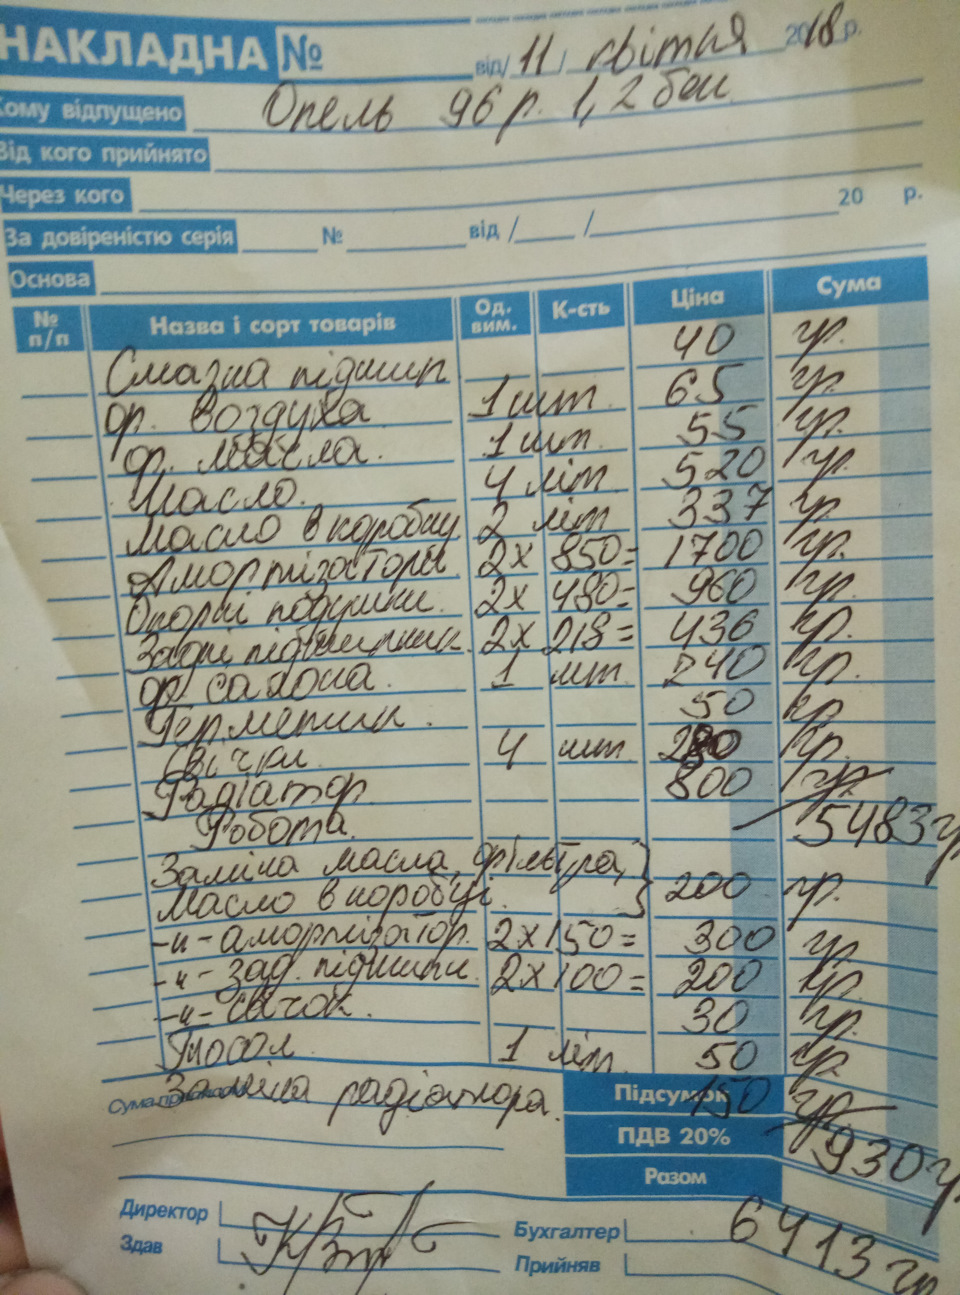 НАКЛАДНА № від/ 11 / квітня 2018р.
Кому відпущено Опель 96 р. 1,2 бен.
Від кого прийнято
Через кого
За довіреністю серія № від / / 20 р.
Основа
№ п/п Назва і сорт товарів Од. вим. К-сть Ціна Сума
Смазка підшип 40 гр.
ф. воздуха 1 шт. 65 гр.
ф. масла. 1 шт. 55 гр.
Масло. 4 літ 520 гр.
Масло в коробку 2 літ 337 гр.
Амортізатори 2х 850= 1700 гр.
Опорні подушки. 2х 480= 960 гр.
Задні підшипники. 2х 218= 436 гр.
ф. салона. 1 шт. 240 гр.
Герметик. 50 гр.
Свічки. 4 шт. 280 гр.
Радіатор. 800 гр.
Робота. 5483 гр
Заміна масла, фільтра,
Масло в коробці. 200 гр.
-"- амортізатор. 2х150= 300 гр
-"- зад. підшипн. 2х100= 200 гр.
-"- свічок. 30 гр.
Тосол 1 літ. 50 гр.
Сума прописом Заміна радіатора. Підсумок 150 гр
ПДВ 20% 930 гр
Разом
Директор Бухгалтер 6413 гр
Здав Прийняв